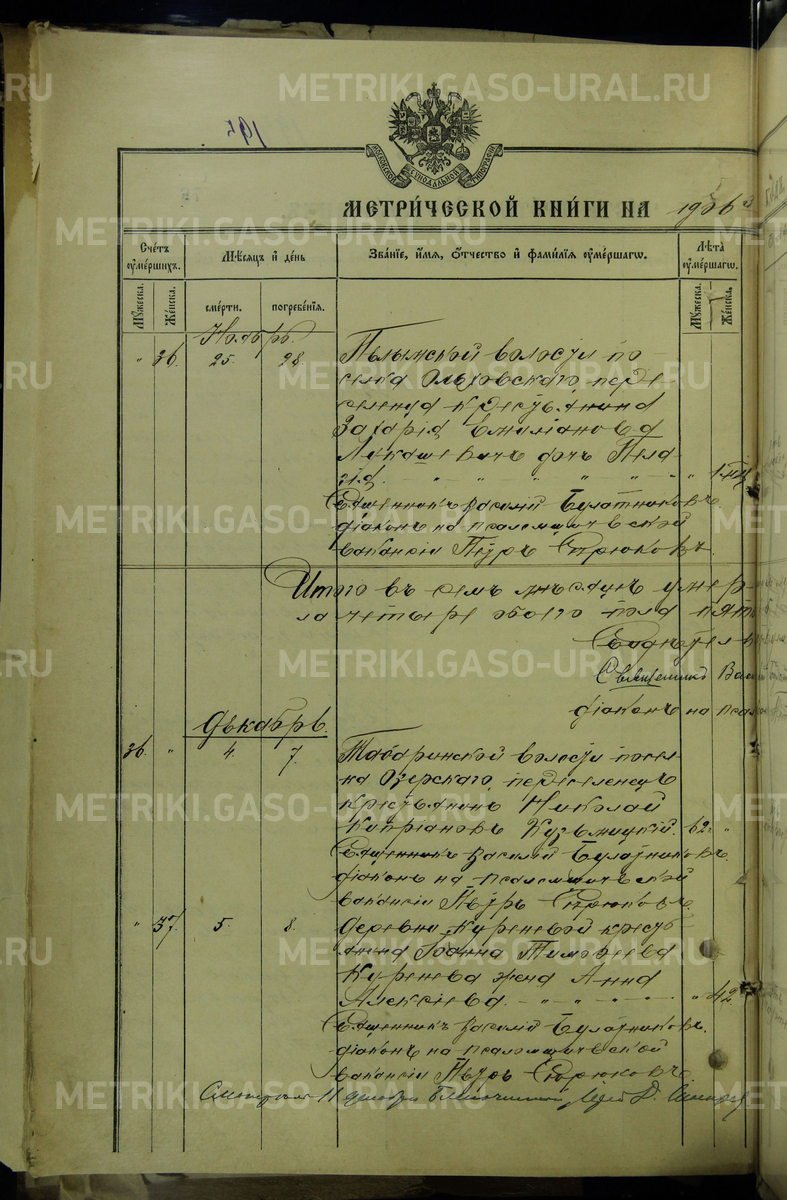 195
МОСКОВСКОЙ СУНОДАЛЬНОЙ ТИПОГРАФІИ
МЕТРИЧЕСКОЙ КНИГИ НА 1906
Счетъ умершихъ.
Мѣсяцъ и день
Званіе, имя, отчество и фамилія умершагѡ.
Лѣта умершагѡ.
Мужеска. Женска.
смерти. погребенія.
Мужеска. Женска.
Ноябрь.
" 36. 25. 28. Пелымской волости по-
селка Ольховскаго пере-
селенца крестьянина
Захарія Емиліанова
Лукашевичъ дочь Пела-
гія. " " " " " " 1 мѣс
Священникъ Василій Булатниковъ.
діаконъ на псаломщической
вакансіи Петръ Спрюковъ.
Итого въ семъ мѣсяцѣ умер-
ло четыре обоего пола пять
Священникъ Вас
діаконъ на псал
Декабрь.
36. " 4. 7. Табаринской волости посел-
ка Озерскаго, переселенецъ
крестьянинъ Николай
Кипріановъ Кузьмицкій. 62. "
Священникъ Василій Булатниковъ.
діаконъ на псаломщической
вакансіи Петръ Спрюковъ.
" 37. 5. 8. Деревни Куреневой кресть-
янина Іоанна Тимофеева
Куренева жена Анна
Алексіева. " " " " " 42.
Священникъ Василій Булатниковъ.
діаконъ на псаломщической
вакансіи Петръ Спрюковъ.
Смотрѣлъ 11 декабря Благочинный
METRIKI.GASO-URAL.RU